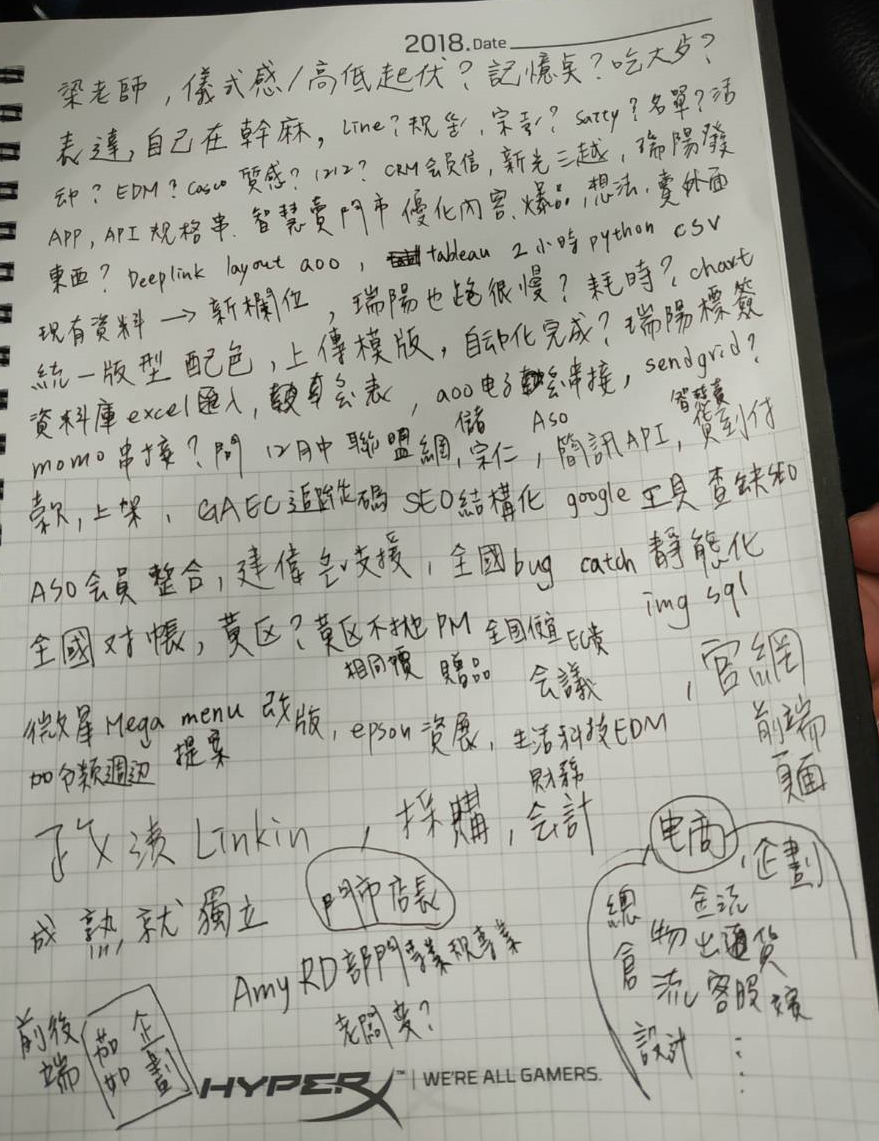 2018.Date
梁老師，儀式感/高低起伏？記憶奌？吃大歺？
表達，自己在幹麻，Line？規劃，宗彥？Satty？名單？活
动？EDM？Casio 質感？1212？CRM会員信，新光三越，瑞陽發
APP，API規格串、智慧賣門市優化內容、爆品，想法，賣外面
東西？Deeplink layout aoo，tableau 2小時python csv
現有資料→新欄位，瑞陽也跑很慢？耗時？chart
統一版型配色，上傳模版，自动化完成？瑞陽標簽
資料庫excel匯入，表，aoo电子串接，sendgrid？
momo串接？問12月中聯盟網，儲宗仁，ASO簡訊API，智慧賣貨到付
款，上架，GAEC追蹤碼 SEO結構化 google工具查缺SEO
ASO会員整合，建偉支援，全國bug catch 靜態化
img sql
全國对帳，黃区？黃区不挑PM 全国便宜EC賣
相同價 贈品 会議
微星Mega menu改版，epson資展，生活科技EDM，官網
加分類週边 提案 財務 前端
頁面
政漢Linkin，採購，会計
电商，企劃
成熟，就獨立 門市店長
總倉 物流 金流 出退貨 客服
設計
Amy RD部門專業規專業
老闆夢？
前後端 茹如 企劃
HYPERX™ | WE'RE ALL GAMERS.